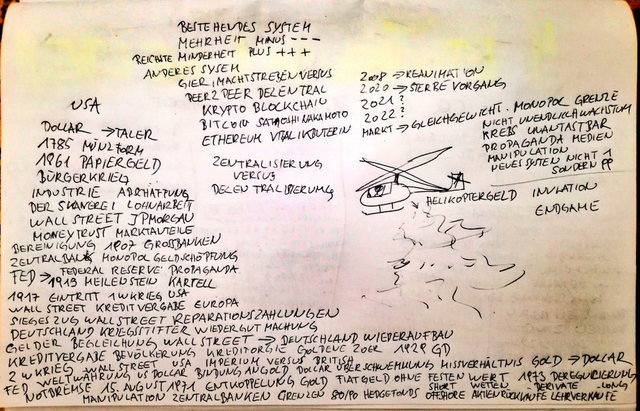 BESTEHENDES SYSTEM
MEHRHEIT MINUS ---
REICHSTE MINDERHEIT PLUS +++
ANDERES SYSEM
GIER, MACHTSTREBEN VERSUS
PEER2PEER DEZENTRAL
KRYPTO BLOCKCHAIN
BITCOIN SATOSHI NAKAMOTO
ETHEREUM VITALIK BUTERIN
ZENTRALISIERUNG
VERSUS
DEZENTRALISIERUNG
2008 → REANIMATION
2020 → STERBE VORGANG
2021?
2022?
MARKT → GLEICHGEWICHT. MONOPOL GRENZE
NICHT UNENDLICH WACHSTUM
KREBS UNANTASTBAR
PROPAGANDA MEDIEN
MANIPULATION
NEUES SYSTEM NICHT 1
SONDERN PP
HELIKOPTERGELD
ENDGAME
USA
DOLLAR → TALER
1785 MÜNZFORM
1861 PAPIERGELD
BÜRGERKRIEG
INDUSTRIE
DER SKAVEREI LOHNARBEIT
WALL STREET JPMORGAN
MONEYTRUST MARKTAUTEILE
BEREINIGUNG 1907 GROSSBANKEN
ZENTRALBANK MONOPOL GELDSCHÖPFUNG
FEDERAL RESERVE PROPAGANDA
FED → 1913 MEILENSTEIN KARTELL
1917 EINTRITT 1 WKRIEG USA
WALL STREET KREDITVERGABE EUROPA
SIEGESZUG WALLSTREET REPARATIONSZAHLUNGEN
DEUTSCHLAND KRIEGSTIFTER WIEDERGUTMACHUNG
GELDER BEGLEICHUNG WALLSTREET → DEUTSCHLAND WIEDERAUFBAU
KREDITVERGABE BEVÖLKERUNG KREDITORGIE GOLDENE 20ER 1929 GD
2 WKRIEG WALLSTREET USA IMPERIUM VERSUS BRITISH
WELTWÄHRUNG US DOLLAR BINDUNG AN GOLD DOLLAR ÜBERSCHWEMMUNG MISSVERHÄLTNIS GOLD → DOLLAR
FED NOTBREMSE 15. AUGUST 1971 ENTKOPPELUNG GOLD FIATGELD OHNE FESTEN WERT 1973 DEREGULIERUNG
SHORT WETEN - DERIVATE - LONG
MANIPULATION ZENTRALBANKEN GRENZEN 80/90 HEDGEFONDS OFFSHORE AKTIENRÜCKKÄUFE LEHRVERKÄUFE